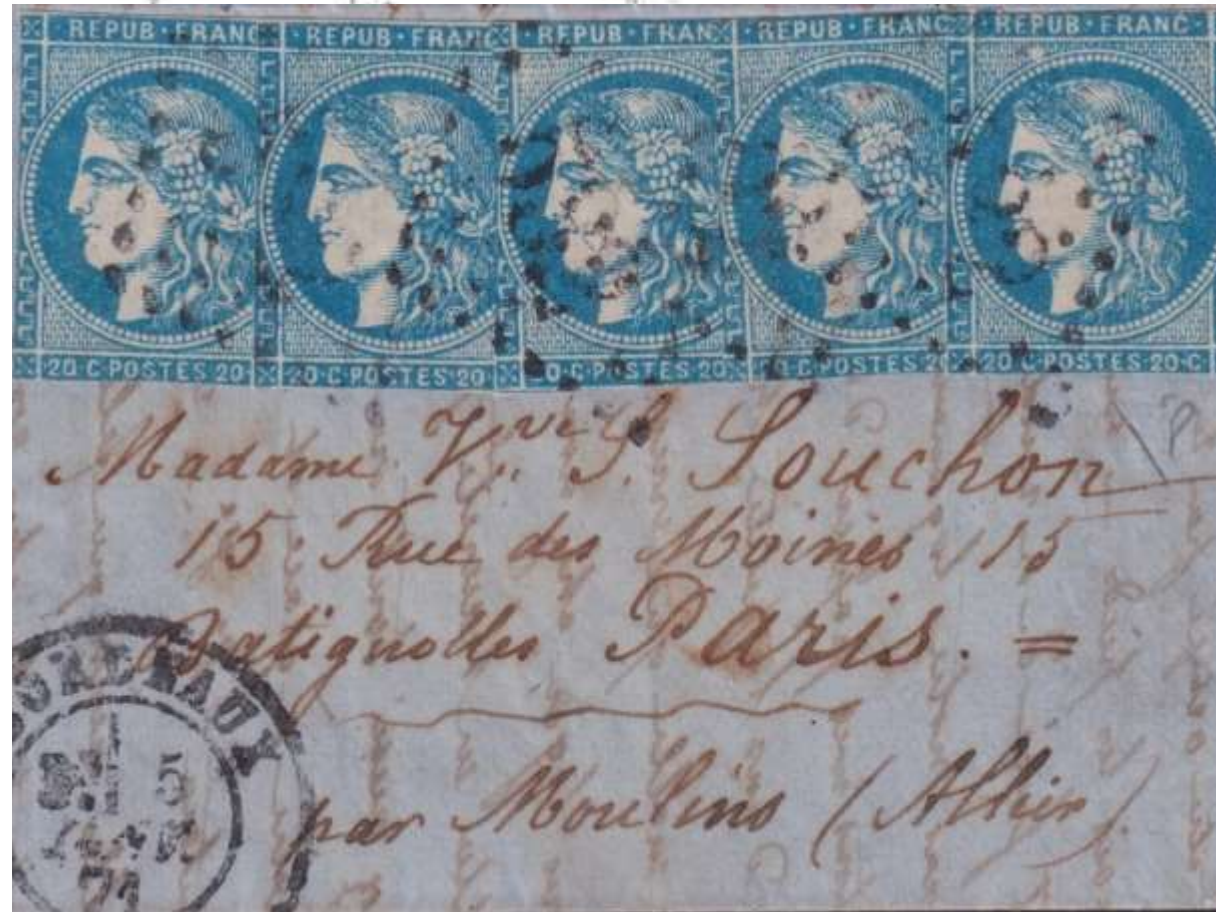 REPUB·FRANC REPUB·FRANC REPUB·FRAN REPUB·FRANC REPUB·FRANC·
20·C·POSTES·20· 20·C·POSTES·20· 20·C·POSTES·20 20·C·POSTES·20 20·C·POSTES·20·C
Madame Vve S. Souchon
15 Rue des Moines 15
Batignolles Paris. =
par Moulins (Allier)
BORDEAUX
5
JANV
71